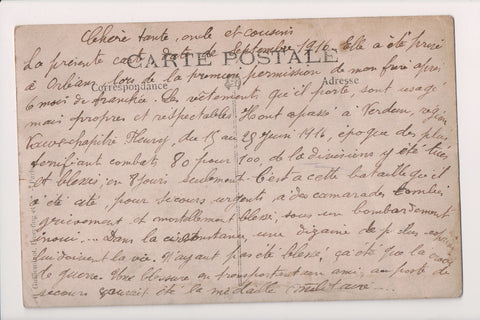 Chère tante, oncle et cousins
La présente carte date de Septembre 1916. Elle a été prise
CARTE POSTALE
à Orléans lors de la première permission de mon frère après
Correspondance
Adresse
6 mois de tranchée. Les vêtements qu'il porte, sont usagé
mais propres et respectables. Il ont passé à Verdun, région
Vaux-chapitre Fleury, du 15 au 23 Juin 1916, époque des plus
terrifiant combats 80 pour 100, de la divisions y été tués
et blessés, en 8 jours seulement. C'est a cette bataille qu'il
a été cité, pour secours urgents à des camarades tombés
grièvement et mortellement blessé, sous un bombardement
inouï... Dans la circonstance, une dizaine de p
lui doivent la vie. N'ayant pas été blessé, ça été que la croix
de guerre. Une blessure en transportant un ami, au poste de
secours aurait été la médaille militaire